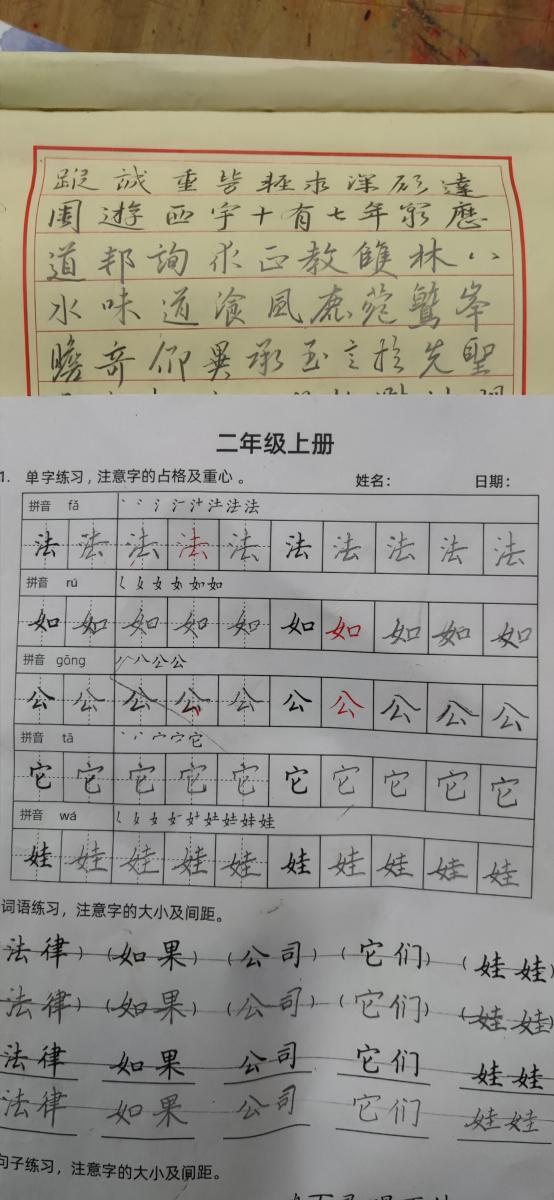 蹤誠重皆輕求深願達
周遊西宇十有七年窮歷
道邦詢求正教雙林八
水味道飡風鹿菀鷲峯
瞻奇仰異承至言於先聖
二年级上册
1. 单字练习，注意字的占格及重心。 姓名： 日期：
拼音 fǎ 法法
法法法法法法法法法法
拼音 rú 如如
如如如如如如如如如如
拼音 gōng 八公公
公公公公公公公公公公
拼音 tā 它
它它它它它它它它它它
拼音 wá 娃娃
娃娃娃娃娃娃娃娃娃娃
词语练习，注意字的大小及间距。
法律）（如果）（公司）（它们）（娃娃）
法律）（如果）（公司）（它们）（娃娃）
法律 如果 公司 它们 娃娃
法律 如果 公司 它们 娃娃
句子练习，注意字的大小及间距。